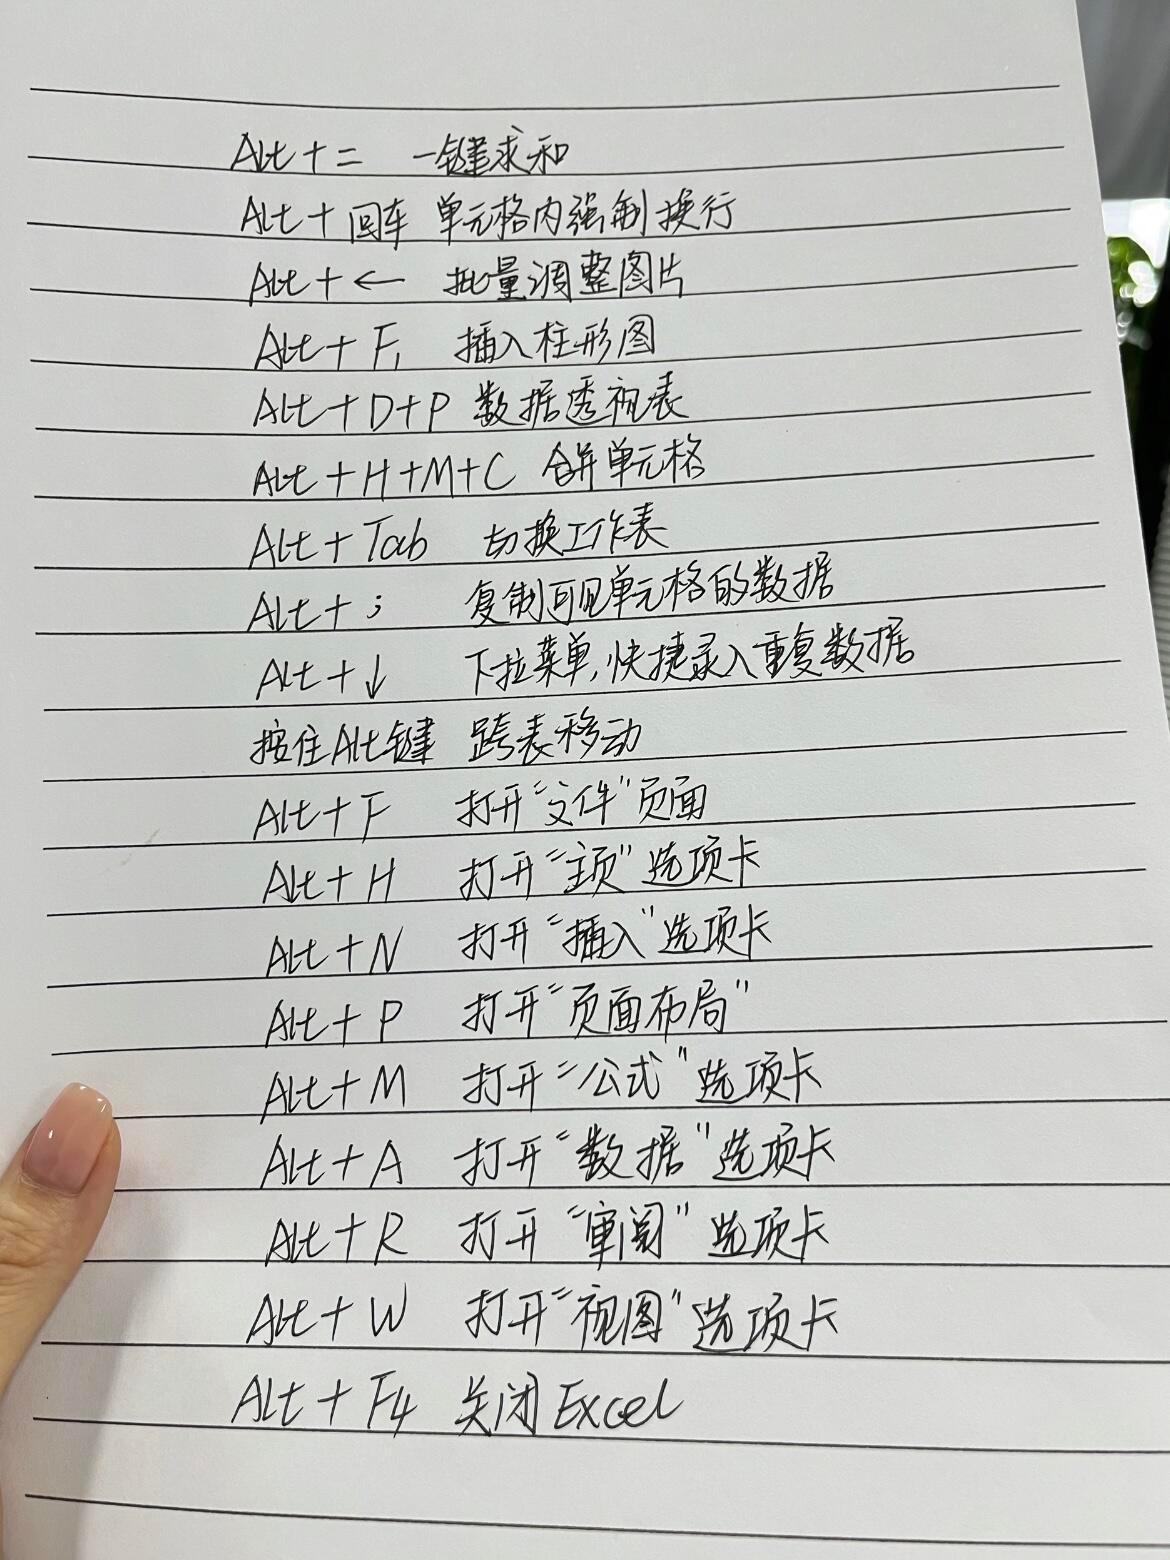 Alt+= 一键求和
Alt+回车 单元格内强制换行
Alt+← 批量调整图片
Alt+F1 插入柱形图
Alt+D+P 数据透视表
Alt+H+M+C 合并单元格
Alt+Tab 切换工作表
Alt+; 复制可见单元格的数据
Alt+↓ 下拉菜单,快捷录入重复数据
按住Alt键 跨表移动
Alt+F 打开“文件”页面
Alt+H 打开“主页”选项卡
Alt+N 打开“插入”选项卡
Alt+P 打开“页面布局”
Alt+M 打开“公式”选项卡
Alt+A 打开“数据”选项卡
Alt+R 打开“审阅”选项卡
Alt+W 打开“视图”选项卡
Alt+F4 关闭Excel